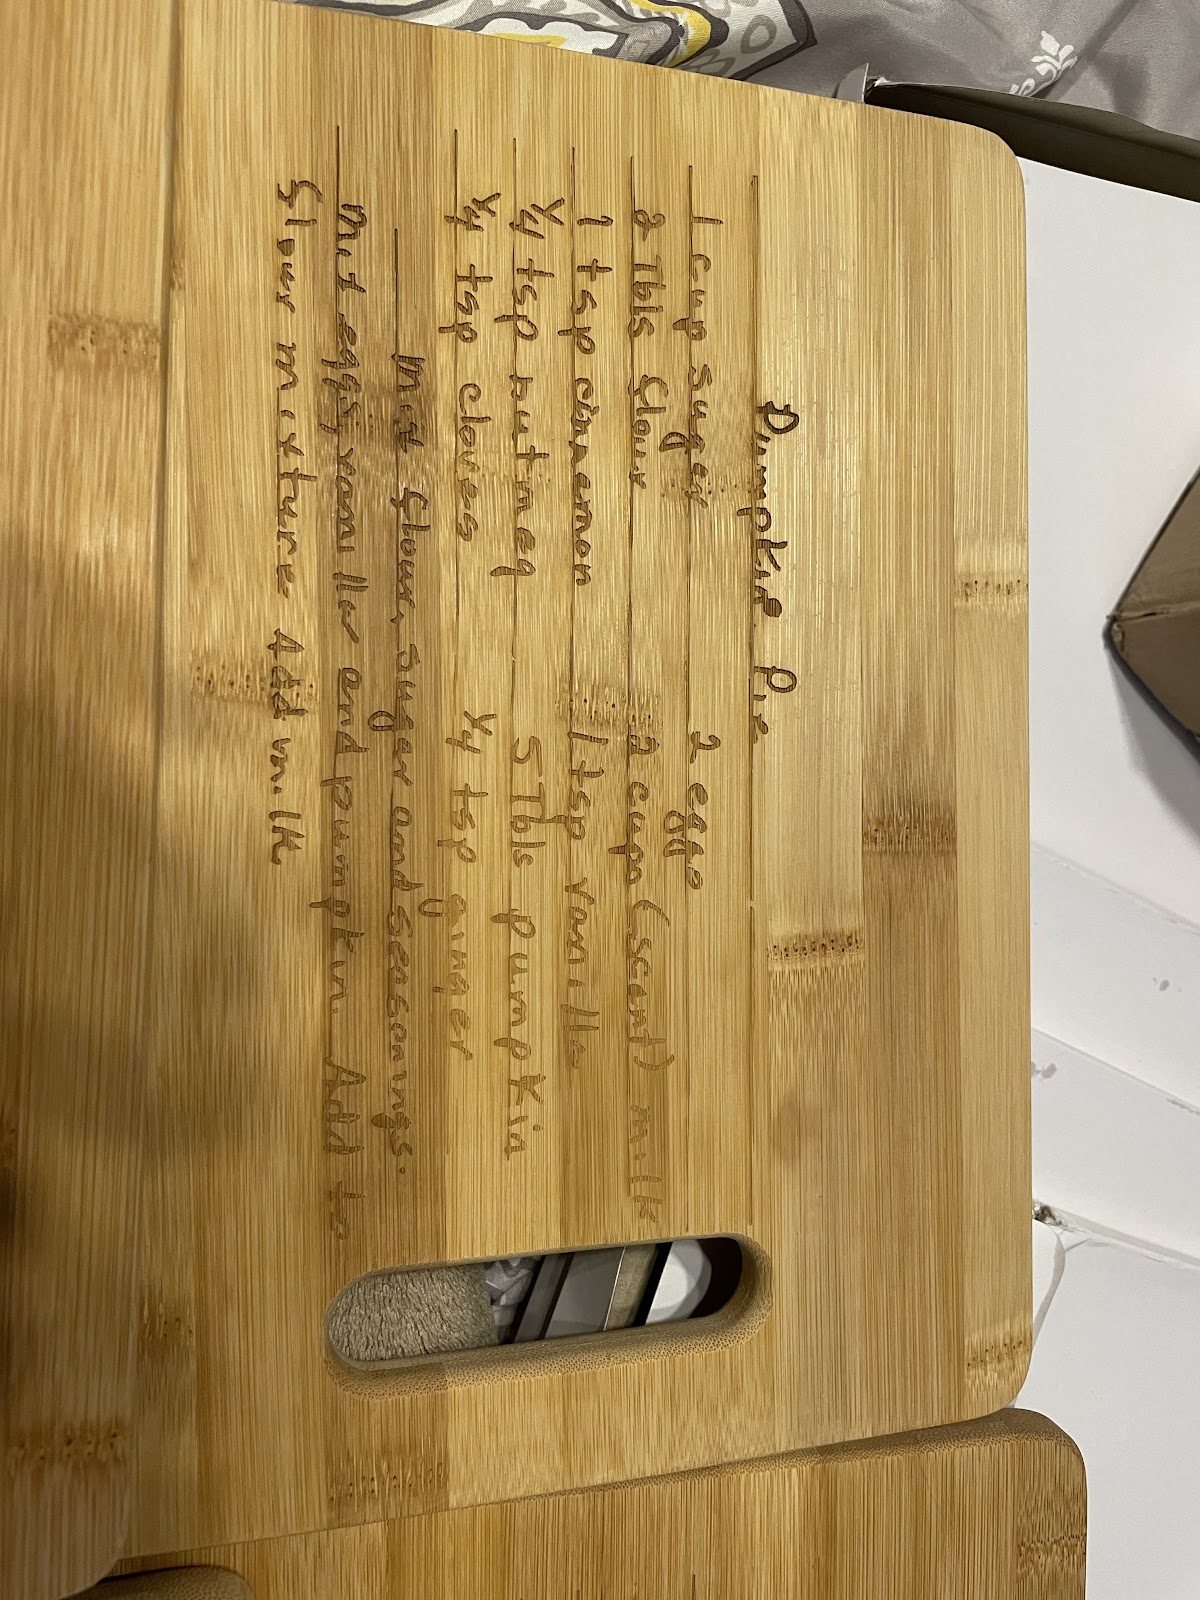 Pumpkin Pie
1 cup sugar 2 eggs
2 Tbls flour 2 cups (scant) milk
1 tsp cinnemon 1 tsp vanilla
1/4 tsp nutmeg 5 Tbls pumpkin
1/4 tsp cloves 1/4 tsp ginger
Mix flour, sugar and seasonings.
Mix eggs, vanilla and pumpkin. Add to
flour mixture Add milk